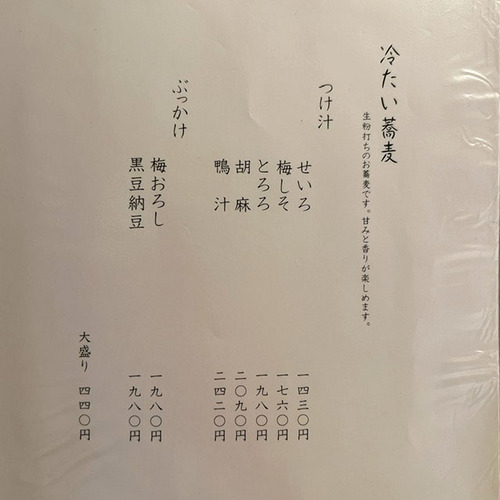 冷たい蕎麦
生粉打ちのお蕎麦です。甘みと香りが楽しめます。
つけ汁
せいろ 一四三〇円
梅しそ 一七六〇円
とろろ 一九八〇円
胡麻 二〇九〇円
鴨汁 二四二〇円
ぶっかけ
梅おろし 一九八〇円
黒豆納豆 一九八〇円
大盛り 四四〇円